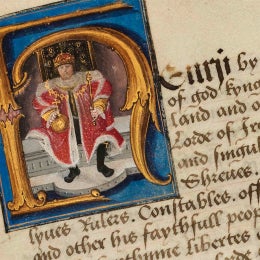 Henry by
of god kyng
land and o
Lorde of Ire
and singul
Shreves
lyves Rulers. Constables. off
and other his faythfull peop
libertes